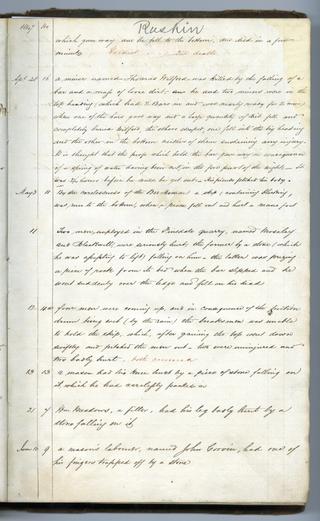 1847 No
Ruskin
which gun way and he fell to the bottom, and died in a few
minutes
Apl 28 16 a miner named Thomas Wilford was killed by the falling of a
bar and a mass of loose dirt. and he and two miners were in the
top heading, which had 2 Bars in and was nearly ready for 2 more,
when one of the bars gave way and a large quantity of dirt fell and
completely buried Wilford, the others escaped, one fell into the big heading
and the other on the bottom neither of them sustaining any injury.
It is thought that the prop which held the bar gave way in consequence
of a spring of water having been met in the fore part of the night. It
was 2½ hours before he could be got out
May 3 11 By the carelessness of the Banksman a skip, containing Blocking,
was run to the bottom, when a piece fell out and hurt a man's foot
11 Two men, employed in the quarry, named Moseley
and Blackwell, were seriously hurt; the former by a stone (which
he was attempting to lift) falling on him - the latter was prizing
a piece of rock from its bed when the bar slipped and he
went suddenly over the ledge and fell on his head
12 four men were coming up, and in consequence of the friction
drum being wet (by the rain) the breaksman was unable
to hold the skip, which, after gaining the top went down
swiftly and pitched the men out - two were uninjured and
two badly hurt. both recovered
19 13 a mason had his knee hurt by a piece of stone falling on
it which he had carelessly packed
21 7 Wm Meadows, a fitter, had his leg badly hurt by a
stone falling on it
June 10 9 a mason's labourer, named John Corvin, had one of
his fingers trapped off by a stone